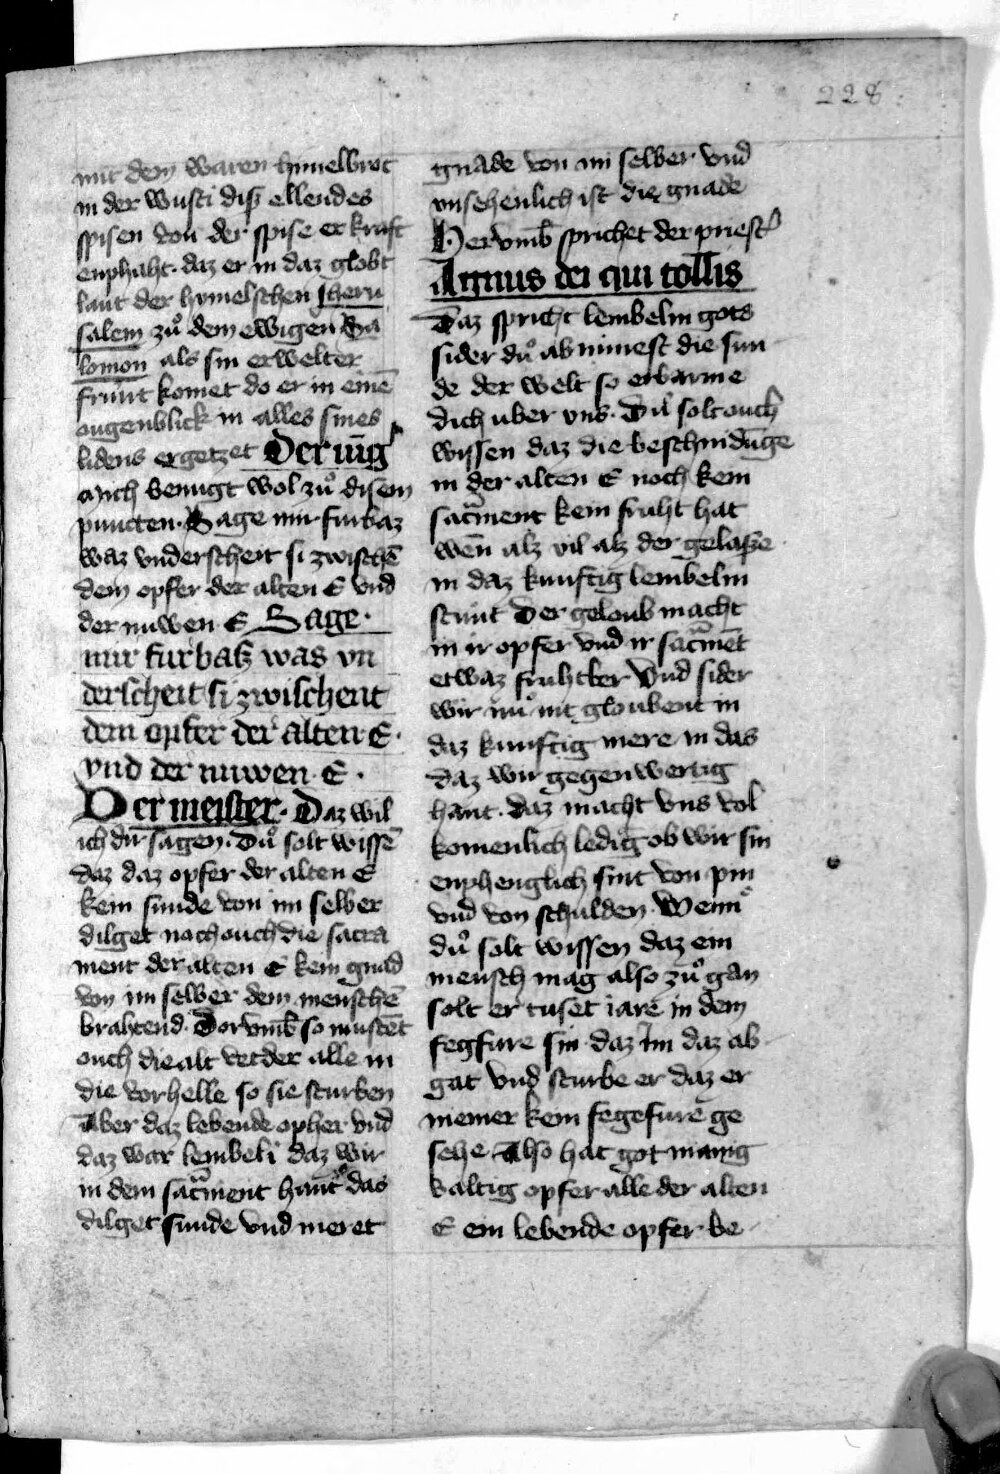 228
mit dem waren himelbrot
in der wusti diß ellendes
spisen von der spise er kraft
enphaht. daz er in daz globt
lant der himelschen Iheru
salem zuͦ dem ewigen Sa
lomon als sin erwelter
frúnt komet do er in eine̅
ougenblick in alles sines
lidens ergetzet Der iu̅g
Mich benugt wol zuͦ disem
puncten. Sage mir furbaz
waz vnderscheit si zwische̅
dem opfer der alten E vnd
der nuwen E Sage.
mir furbas was vn
derscheit si zwischent
dem opfer der alten E.
vnd der nuwen E.
Der meister. Daz wil
ich dir sagen. Duͦ solt wisse̅
daz daz opfer der alten E
kein sunde von im selber
dilget noch ouch die sacra
ment der alten E kein gnad
von im selber dem mensche̅
brahtend. Dorvmb̅ so muste̅t
ouch die alt vetder alle in
die vorhelle so sie sturben
Aber daz lebende opher vnd
daz war lembeli daz wir
in dem sac̅ment hant das
dilget sunde vnd meret
gnade von im selber vnd
vnsehenlich ist die gnade
Hervmb̅ sprichet der priest̕
Agnus dei qui tollis
Daz spricht lembelin gots
sider duͦ ab nimest die sun
de der welt so erbarme
dich uber vns. Du solt ouch
wissen daz die beschnidu̅ge
in der alten E noch kein
sac̅ment kein fruht hat
we̅n alz vil alz der gelaße
in daz kunftig lembelin
stúnt Der geloub macht
in ir opfer vnd ir sac̅me̅t
etwaz fruhtber Vnd sider
wir nuͦ nit gloubent in
daz kunftig mere in das
daz wir gegenwertig
hant. daz macht vns vol
komenlich ledig ob wir sin
enphenglich sint von pin
vnd von schulden. Wenn
duͦ solt wissen daz ein
mensch mag also zuͦ gan
solt er tuset iare in dem
fegfure sin daz Im daz ab
gat vnd sturbe er daz er
niemer kein fegefure ge
sehe Also hat got manig
valtig opfer alle der alten
E ein lebende opfer be